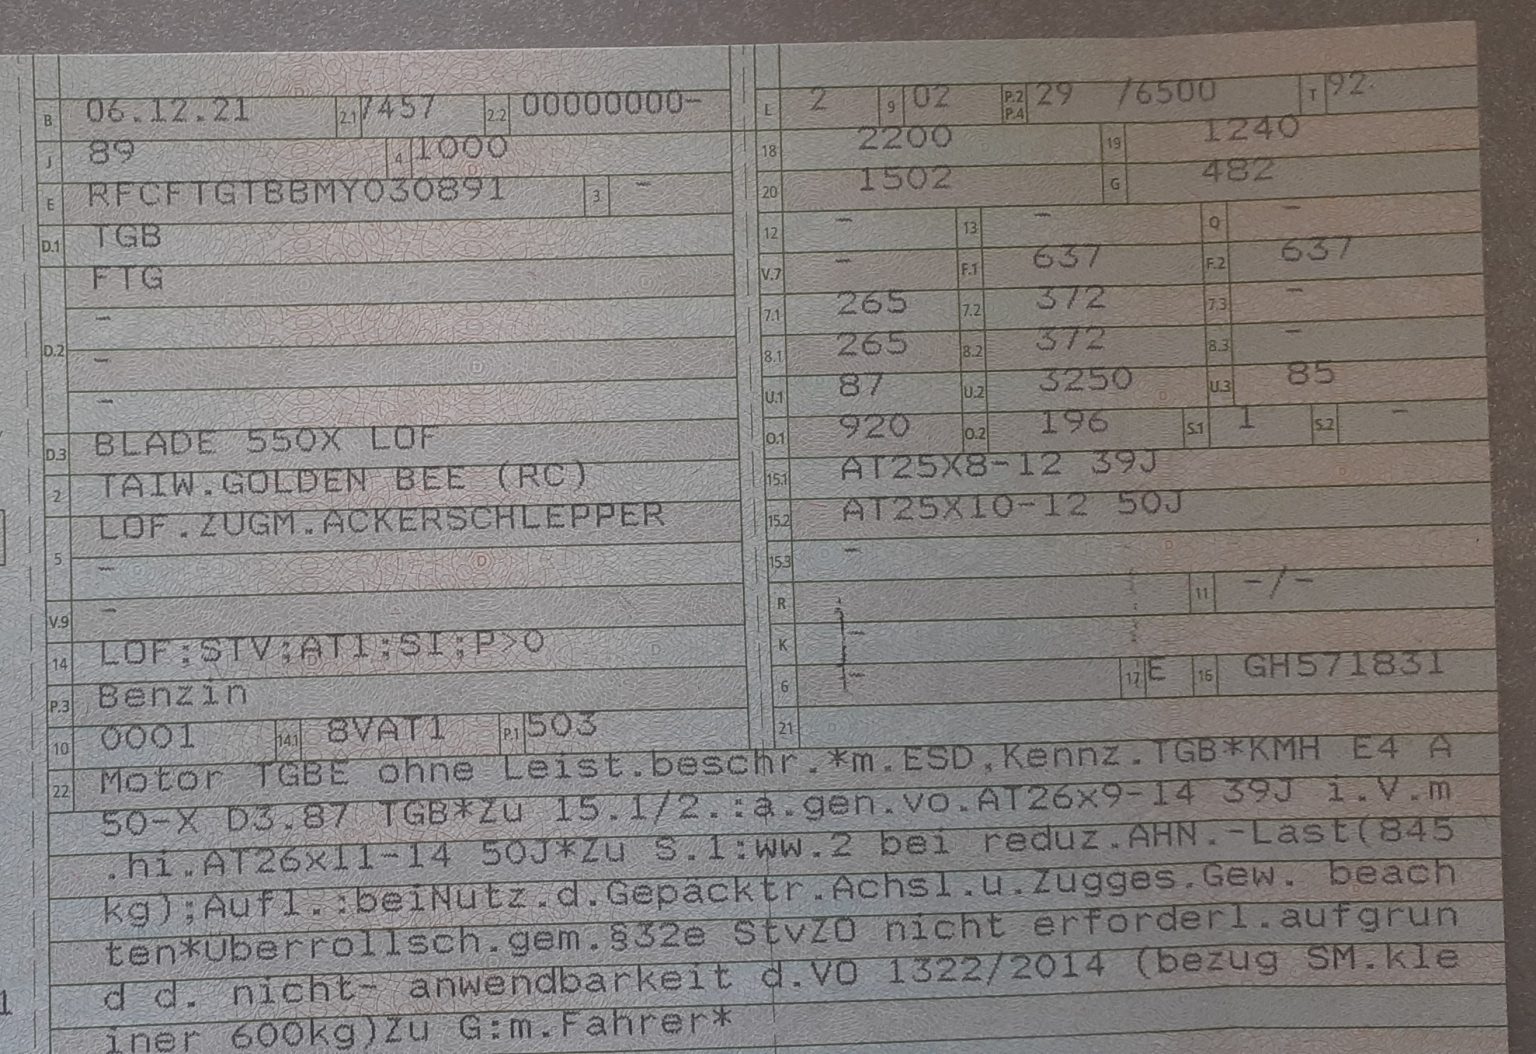 B 06.12.21 2.1 7457 2.2 00000000-
J 89 4 1000
E RFCFTGTBBMY030891 3 -
D.1 TGB
FTG
-
D.2 -
-
D.3 BLADE 550X LOF
2 TAIW.GOLDEN BEE (RC)
LOF.ZUGM.ACKERSCHLEPPER
5 -
V.9 -
14 LOF;STV;AT1;SI;P>0
P.3 Benzin
10 0001 14.1 8VAT1 P.1 503
L 2 9 02 P.2 P.4 29 /6500 T 92
18 2200 19 1240
20 1502 G 482
12 - 13 - Q -
V.7 - F.1 637 F.2 637
7.1 265 7.2 372 7.3 -
8.1 265 8.2 372 8.3 -
U.1 87 U.2 3250 U.3 85
O.1 920 O.2 196 S.1 1 S.2 -
15.1 AT25X8-12 39J
15.2 AT25X10-12 50J
15.3 -
R 11 -/-
K -
6 - 17 E 16 GH571831
21
22 Motor TGBE ohne Leist.beschr.*m.ESD,Kennz.TGB*KMH E4 A
50-X D3.87 TGB*Zu 15.1/2.:a.gen.vo.AT26x9-14 39J i.V.m
.hi.AT26x11-14 50J*Zu S.1:ww.2 bei reduz.AHN.-Last(845
kg);Aufl.:beiNutz.d.Gepäcktr.Achsl.u.Zugges.Gew. beach
ten*Überrollsch.gem.§32e StvZO nicht erforderl.aufgrun
d d. nicht- anwendbarkeit d.VO 1322/2014 (bezug SM.kle
iner 600kg)Zu G:m.Fahrer*